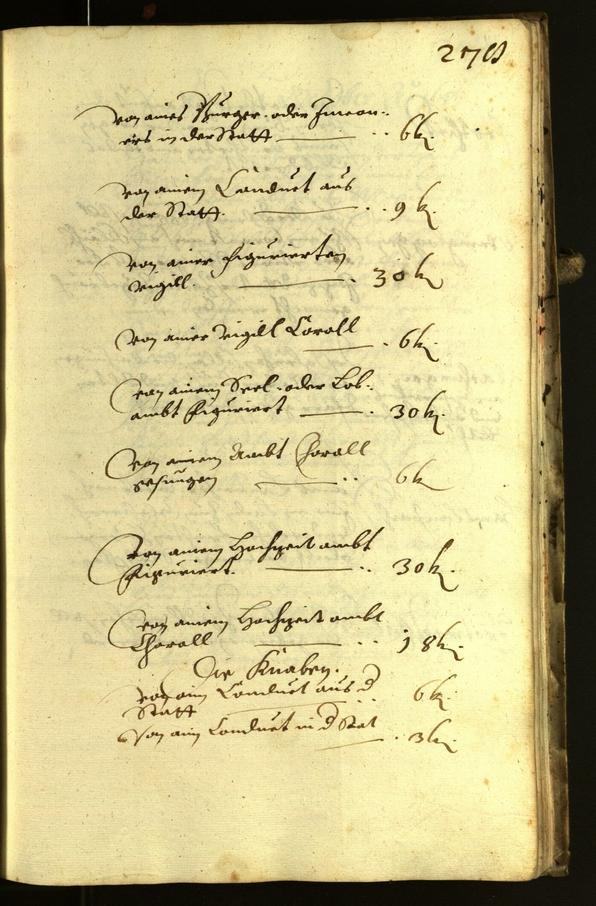 270
Von aines Burger oder Inwon-
ers in der Statt — 6 k.
Von ainem Conduct aus
der Statt. — 9 k.
Von ainer figurierten
vigill. — 30 k.
Von ainer vigill Corall
— 6 k.
Von ainem Seel- oder Lob-
ambt figuriert — 30 k.
Von ainem Ambt Chorall
gesungen — 6 k
Von ainem Hochzeit ambt
figuriert. — 30 k.
Von ainem Hochzeit ambt
Chorall — 18 k.
Die Knaben.
Von aim Conduct aus d
Statt — 6 k.
Von aim Conduct in d Stat
— 3 k.